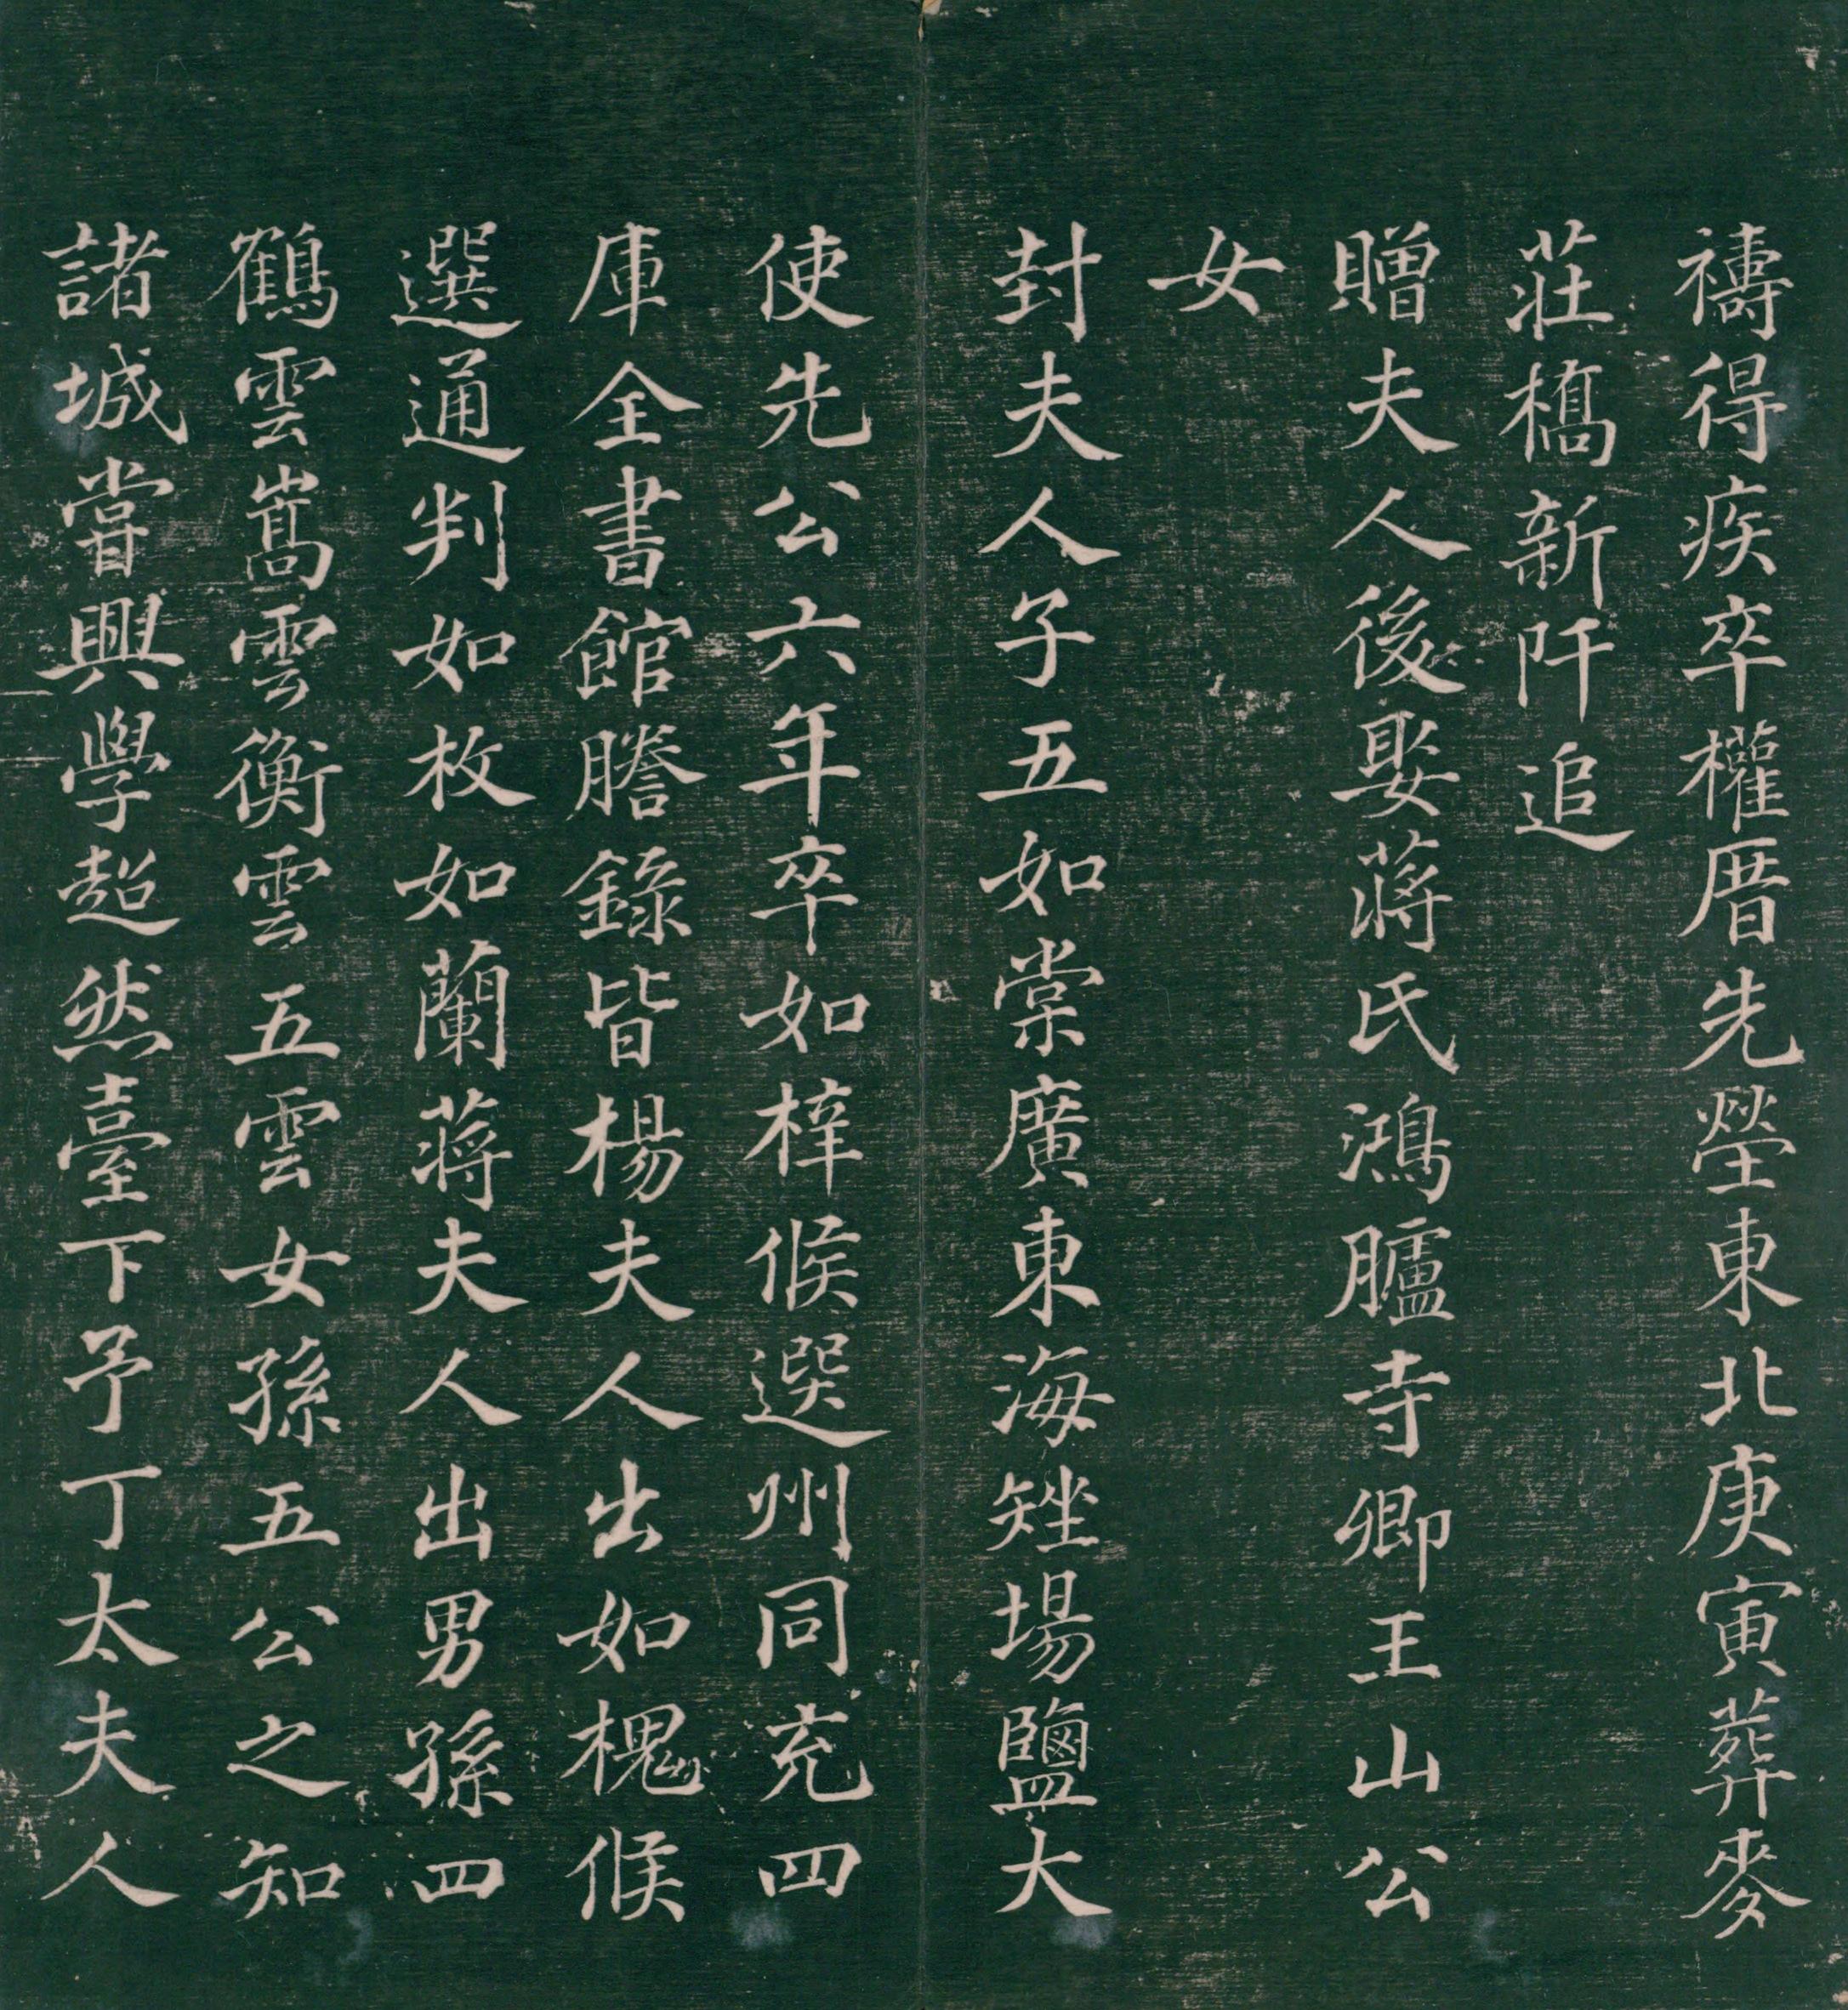 禱得疾卒權厝先塋東北庚寅葬麥
莊橋新阡追
贈夫人後娶蔣氏鴻臚寺卿王山公
女
封夫人子五如棠廣東海矬場鹽大
使先公六年卒如梓候選州同充四
庫全書館謄錄皆楊夫人出如槐候
選通判如枚如蘭蔣夫人出男孫四
鶴雲嵩雲衡雲五雲女孫五公之知
諸城嘗興學超然臺下予丁太夫人